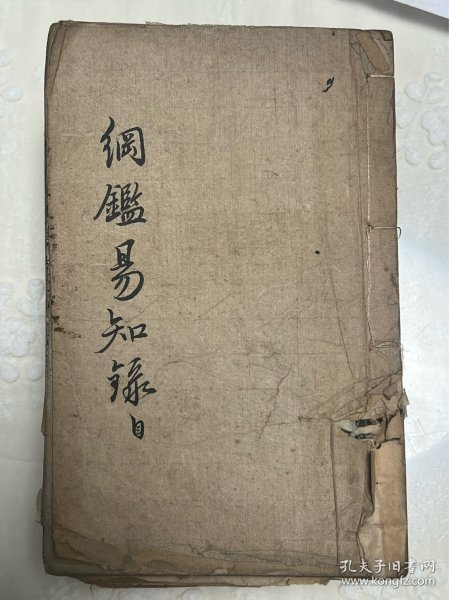 綱鑑易知錄自
孔夫子旧书网
www.kongfz.com